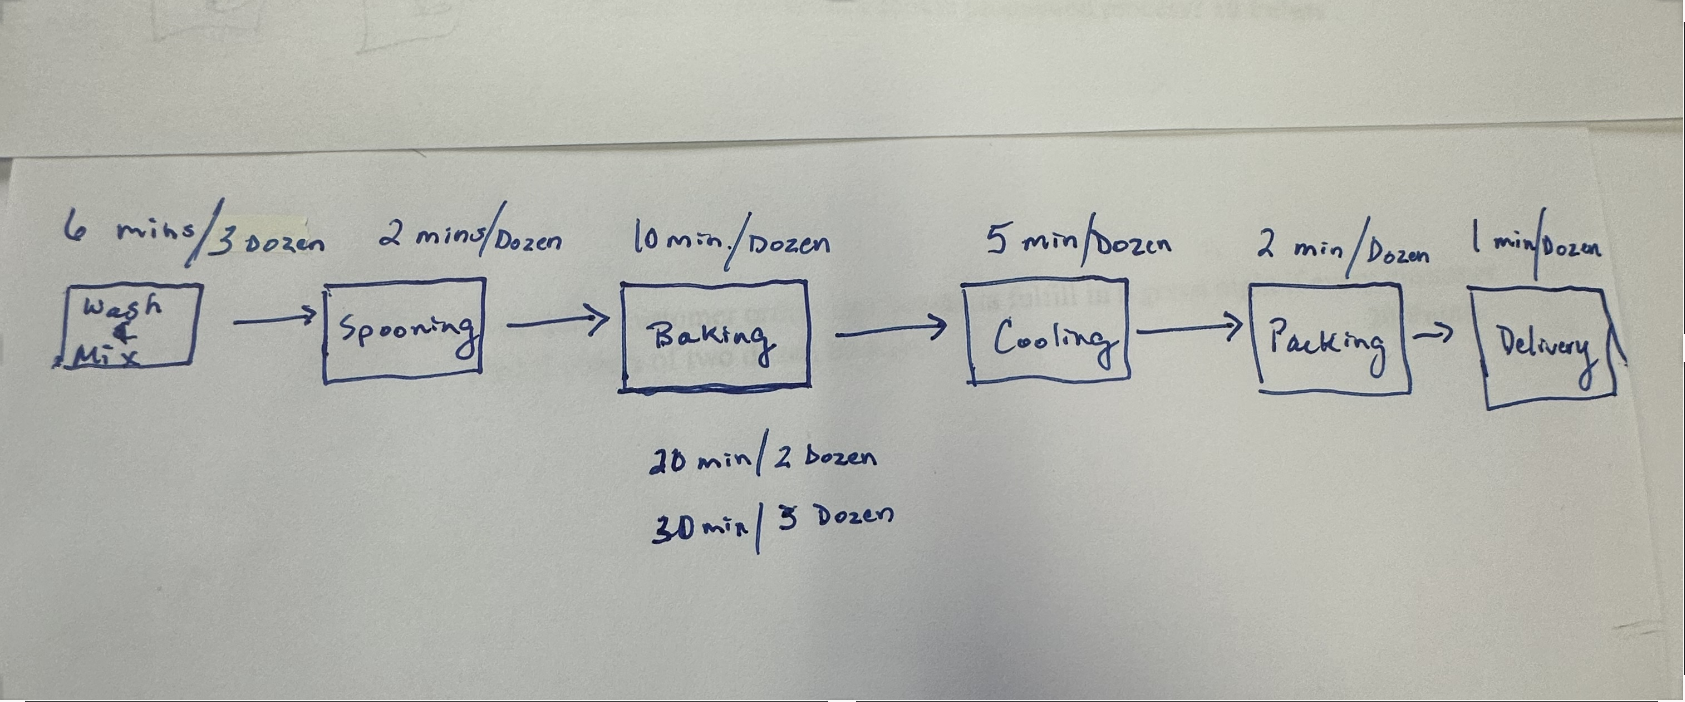 6 mins/3 Dozen
2 mins/Dozen
10 min./Dozen
5 min/Dozen
2 min/Dozen
1 min/Dozen
Wash
&
Mix
Spooning
Baking
Cooling
Packing
Delivery
20 min/2 Dozen
30 min/3 Dozen